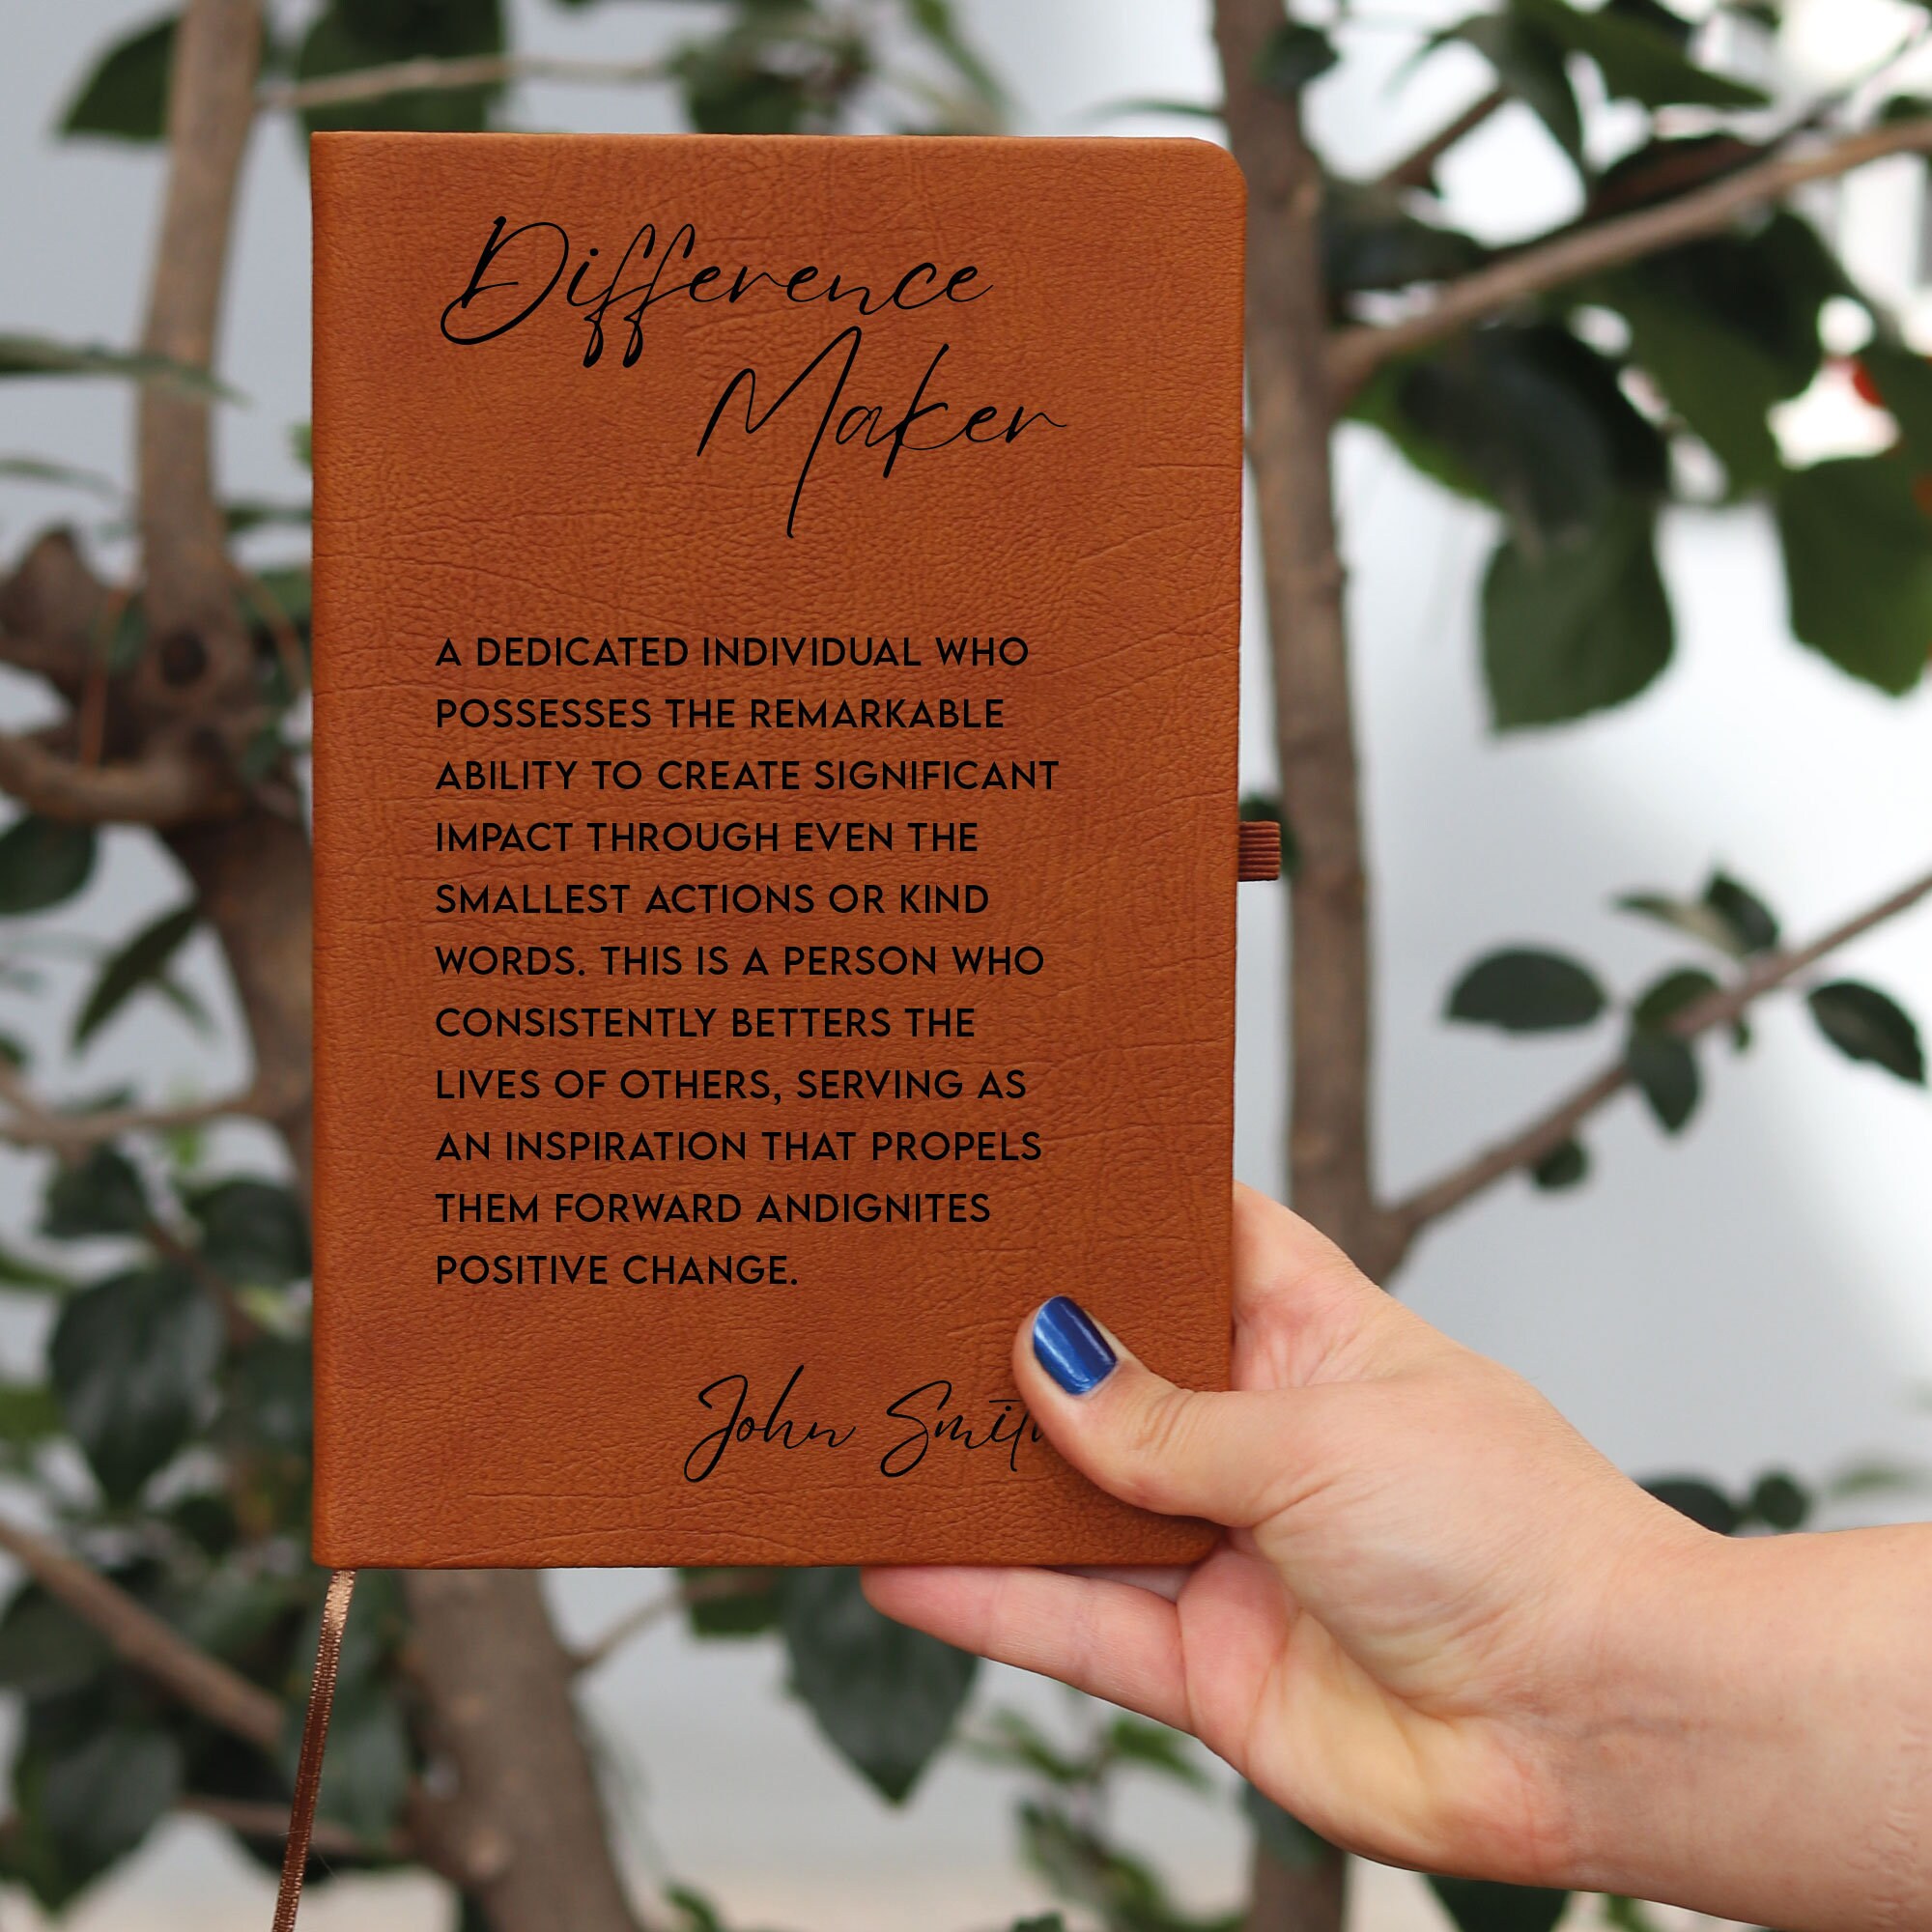 Difference
Maker
A DEDICATED INDIVIDUAL WHO
POSSESSES THE REMARKABLE
ABILITY TO CREATE SIGNIFICANT
IMPACT THROUGH EVEN THE
SMALLEST ACTIONS OR KIND
WORDS. THIS IS A PERSON WHO
CONSISTENTLY BETTERS THE
LIVES OF OTHERS, SERVING AS
AN INSPIRATION THAT PROPELS
THEM FORWARD ANDIGNITES
POSITIVE CHANGE.
John